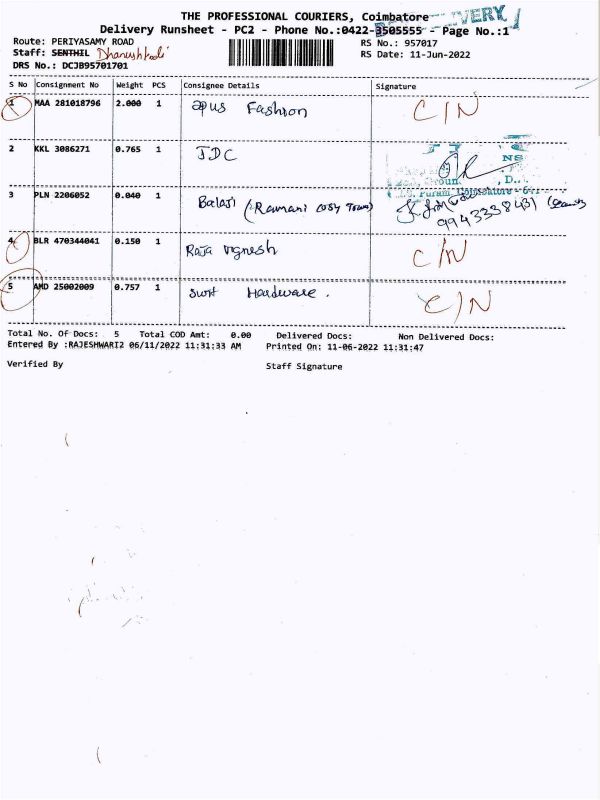 THE PROFESSIONAL COURIERS, Coimbatore
DELIVERY
Delivery Runsheet - PC2 - Phone No.:0422-3505555 - Page No.:1
Route: PERIYASAMY ROAD RS No.: 957017
Staff: SENTHIL RS Date: 11-Jun-2022
DRS No.: DCJB95701701
S No Consignment No Weight PCS Consignee Details Signature
1 MAA 281018796 2.000 1 apus Fashion C/N
2 KKL 3086271 0.765 1 JDC
3 PLN 2206052 0.040 1 Balaji (Ramani cosy Town) 9943338431
4 BLR 470344041 0.150 1 Raja vignesh C/N
5 AMD 25002009 0.757 1 Hardware. C/N
Total No. Of Docs: 5 Total COD Amt: 0.00 Delivered Docs: Non Delivered Docs:
Entered By :RAJESHWARI2 06/11/2022 11:31:33 AM Printed On: 11-06-2022 11:31:47
Verified By Staff Signature